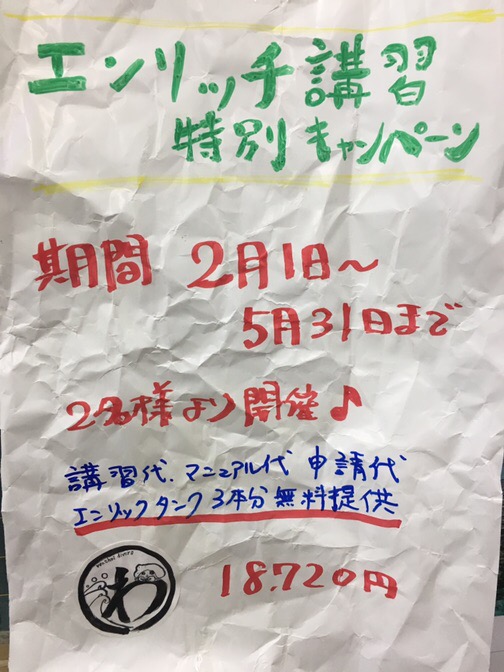 エンリッチ講習
特別キャンペーン
期間 2月1日～
5月31日まで
2名様より開催♪
講習代、マニュアル代 申請代
エンリックタンク3本分無料提供
わ
18.720円